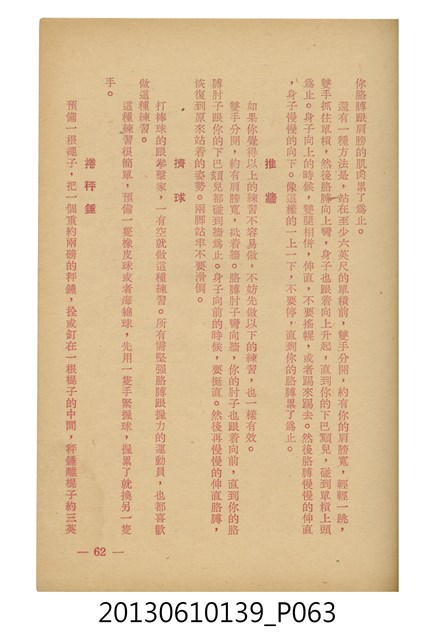 你胳膊跟肩膀的肌肉累了爲止。
還有一種方法是,站在至少六英尺的單積前,雙手分開,約有你的肩膀寬,輕輕一跳,
雙手抓住單積,然後胳膊向上彎,身子也跟着向上升起,直到你的下巴頦兒,碰到單積上頭
爲止。身子向上的時候,雙腿相併,伸直,不要搖幌,或者踢來踢去。然後胳膊慢慢的伸直
,身子慢慢的向下。像這樣的一上一下,不要停,直到你的胳膊累了爲止。
推牆
如果你覺得以上的練習不容易做,不妨先做以下的練習,也一樣有效。
雙手分開,約有肩膀寬,杙着牆。胳膊肘子彎向牆,你的肘子也跟着向前,直到你的胳
膊肘子跟你的下巴頦兒都碰到牆爲止。身子向前的時候,要挺直。然後再慢慢的伸直胳膊,
恢復到原來站着的姿勢。兩脚站牢不要滑倒。
擠球
打棒球的跟拳擊家,一有空就做這種練習。所有需堅强胳膊跟握力的運動員,也都喜歡
做這種練習。
這種練習很簡單,預備一隻橡皮球或者海綿球,先用一隻手緊握球,握累了就換另一隻
手。
捲秤錘
預備一根繩子,把一個重約兩磅的秤錘,拴或釘在一根棍子的中間,秤錘離棍子約三英
— 62 —
20130610139_P063